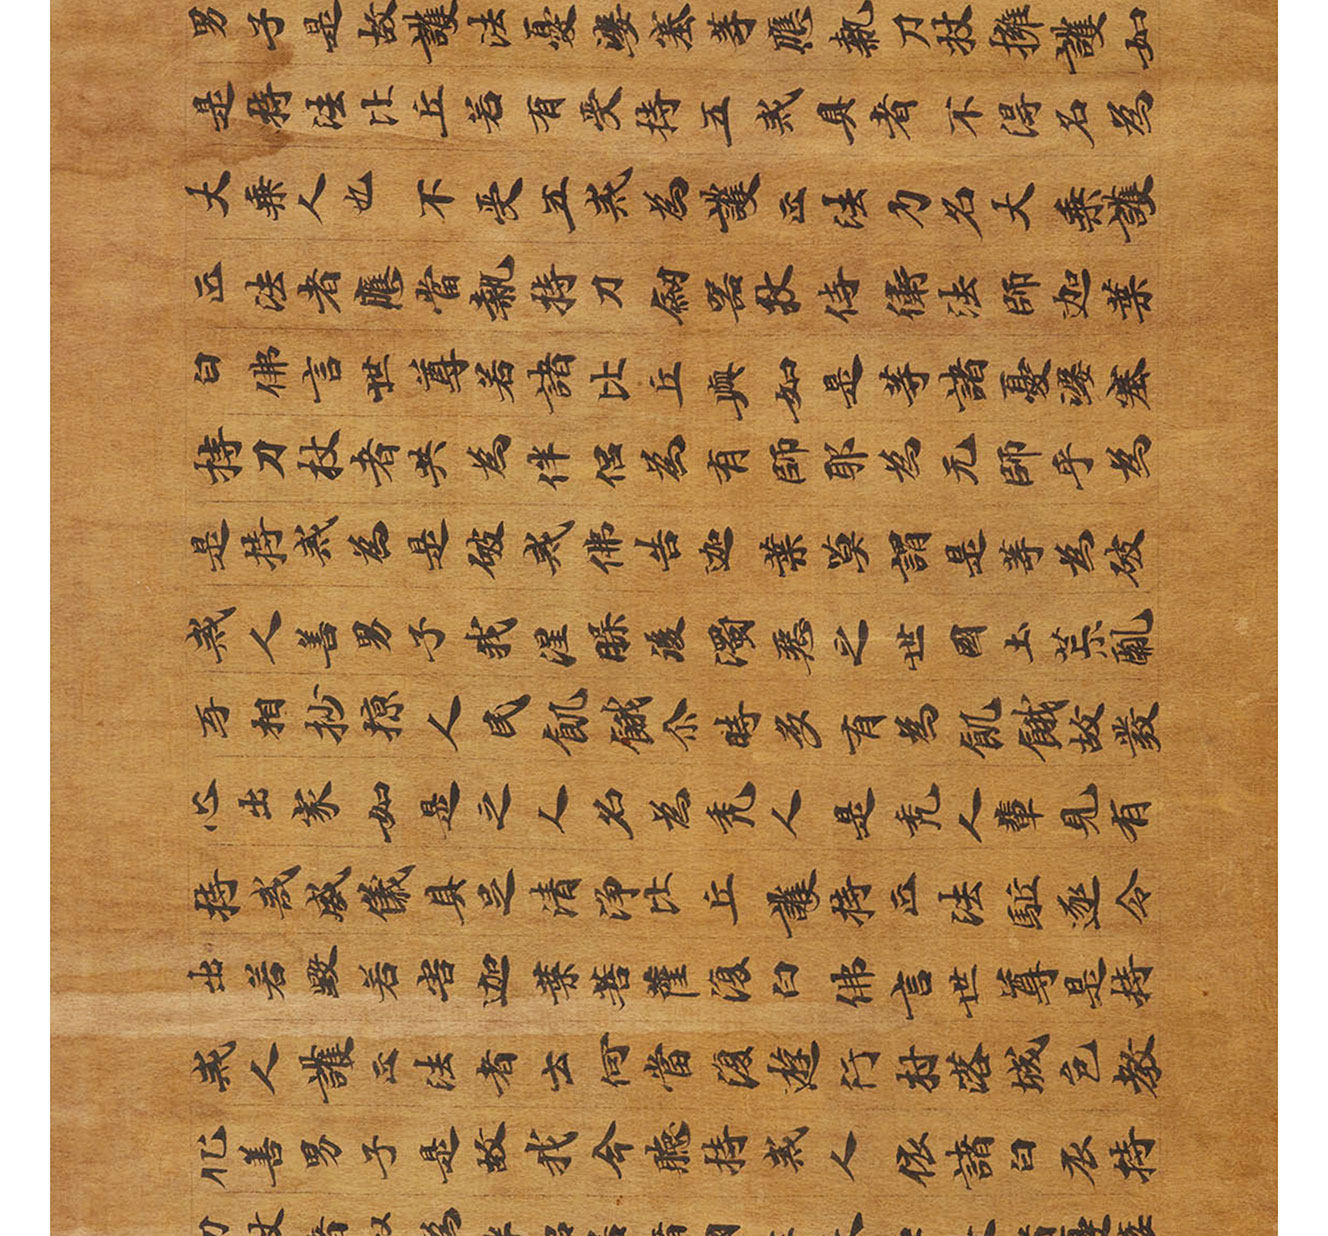 男子是故護法憂婆塞等應執刀杖擁護如
是持法比丘若有受持五戒具者不得名為
大乘人也不受五戒為護正法乃名大乘護
正法者應當執持刀劒器杖侍衛法師迦葉
白佛言世尊若諸比丘與如是等諸憂婆塞
持刀杖者共為伴侶為有師耶為无師乎為
是持戒為是破戒佛告迦葉莫謂是等為破
戒人善男子我涅槃後濁惡之世國土荒亂
互相抄掠人民飢餓尒時多有為飢餓故發
心出家如是之人名為禿人是禿人輩見有
持戒威儀具足清淨比丘護持正法駈逐令
出若毀若害迦葉菩薩復白佛言世尊是持
戒人護正法者云何當復遊行村落城邑教
化善男子是故我今聽持戒人依諸白衣持
刀杖者以為伴侶